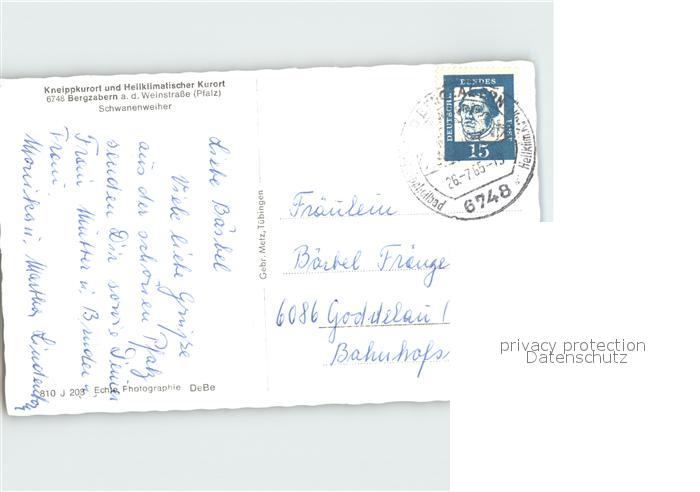 Kneippkurort und Heilklimatischer Kurort
6748 Bergzabern a. d. Weinstraße (Pfalz)
Schwanenweiher
Liebe Bärbel
Viele liebe Grüsse
aus der schönen Pfalz
senden Dir sowie Deiner
Frau Mutter u. Bruder u.
Frau.
Martha
810 J 203 Echte Photographie DeBe
Gebr. Metz, Tübingen
DEUTSCHE BUNDES
15
BERGZABERN
26.-7.65-15
6748
Heilklimat
Fräulein
Bärbel Fränge
6086 Goddelau (
Bahnhofs
privacy protection
Datenschutz